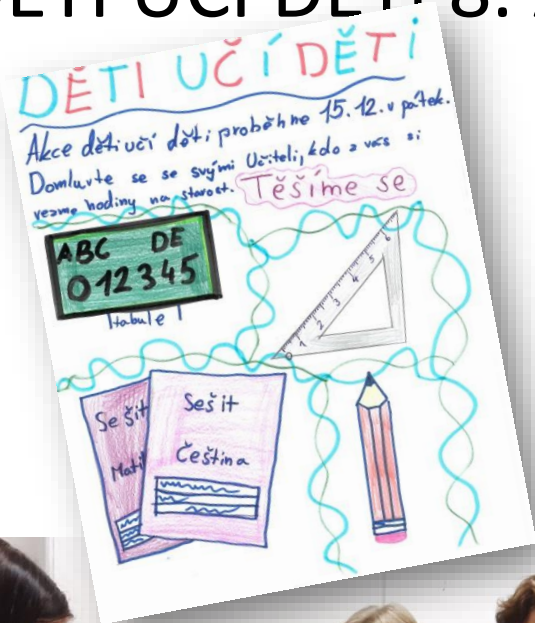 DĚTI UČÍ DĚTI 8.
DĚTI UČÍ DĚTI
Akce děti učí děti proběhne 15.12. v pátek.
Domluvte se se svými Učiteli, kdo z vás si
vezme hodiny na starost. Těšíme se
ABC DE
012345
tabule
0 1 2 3 4 5 6
Sešit
Sešit
Čeština